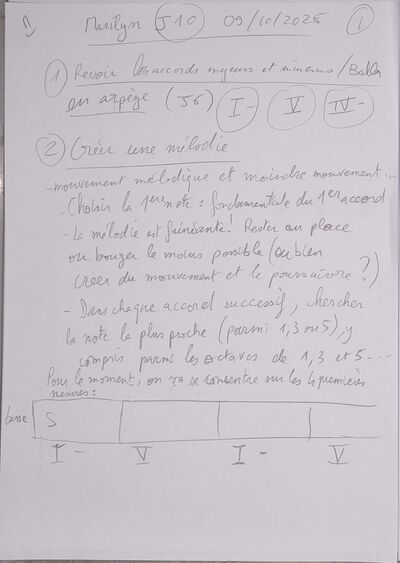 Marilyn J10 09/10/2025 1
1) Revoir les accords majeurs et mineurs /
en arpège (J6) I- V IV-
2 Créer une mélodie
- mouvement mélodique et moindre mouvement...
- Choisir la 1ère note : fondamentale du 1er accord
- La mélodie est fainéante ! Rester au place
ou bouger le moins possible (ou bien
créer du mouvement et le poursuivre ?)
- Dans chaque accord successif, chercher
la note la plus proche (parmi 1, 3 ou 5), y
compris parmi les octaves de 1, 3 et 5 ...
Pour le moment, on va se consentre sur les 4 premières
mesures :
basse S
I - V I - V